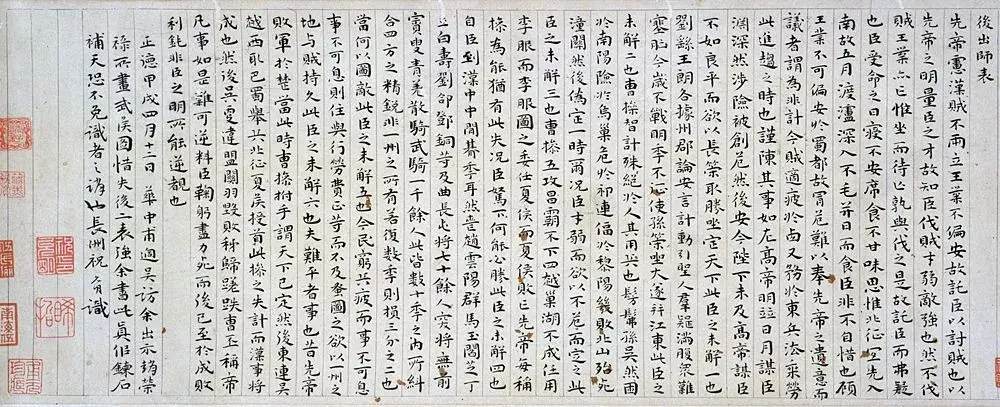 後出師表
先帝慮漢賊不兩立王業不偏安故託臣以討賊也以
先帝之明量臣之才故知臣伐賊才弱敵強也然不伐
賊王業亦亡惟坐而待亡孰與伐之是故託臣而弗疑
也臣受命之日寢不安席食不甘味思惟北征宜先入
南故五月渡瀘深入不毛并日而食臣非不自惜也顧
王業不可偏安於蜀都故冒危難以奉先帝之遺意而
議者謂為非計今賊適疲於西又務於東兵法乘勞
此進趨之時也謹陳其事如左高帝明並日月謀臣
淵深然涉險被創危然後安今陛下未及高帝謀臣
不如良平而欲以長策取勝坐定天下此臣之未解一也
劉繇王朗各據州郡論安言計動引聖人羣疑滿腹衆難
塞胸今歲不戰明年不征使孫策坐大遂并江東此臣之
未解二也曹操智計殊絕於人其用兵也髣髴孫吳然困
於南陽險於烏巢危於祁連偪於黎陽幾敗北山殆死
潼關然後偽定一時爾况臣才弱而欲以不危而定之此
臣之未解三也曹操五攻昌霸不下四越巢湖不成任用
李服而李服圖之委任夏侯而夏侯敗亡先帝每稱
操為能猶有此失况臣駑下何能必勝此臣之未解四也
自臣到漢中中間朞年耳然喪趙雲陽群馬玉閻芝丁
立白壽劉郃鄧銅等及曲長屯將七十餘人突將無前
賨叟青羌散騎武騎一千餘人此皆數十年之內所糾
合四方之精銳非一州之所有若復數年則損三分之二也
當何以圖敵此臣之未解五也今民窮兵疲而事不可息
事不可息則住與行勞費正等而不及蚤圖之欲以一州之
地与賊持久此臣之未解六也夫難平者事也昔先帝
敗軍於楚當此時曹操拊手謂天下已定然後東連吳
越西取巴蜀舉兵北征夏侯授首此操之失計而漢事將
成也然後吳更違盟關羽毀敗秭歸蹉跌曹丕稱帝
凡事如是難可逆料臣鞠躬盡力死而後已至於成敗
利鈍非臣之明所能逆覩也
正德甲戌四月十二日華中甫過吳訪余出示趙榮
祿所畫武侯圖惜失後二表強余書此真但鍊石
補天恐不免識者之誚也長洲祝允明識